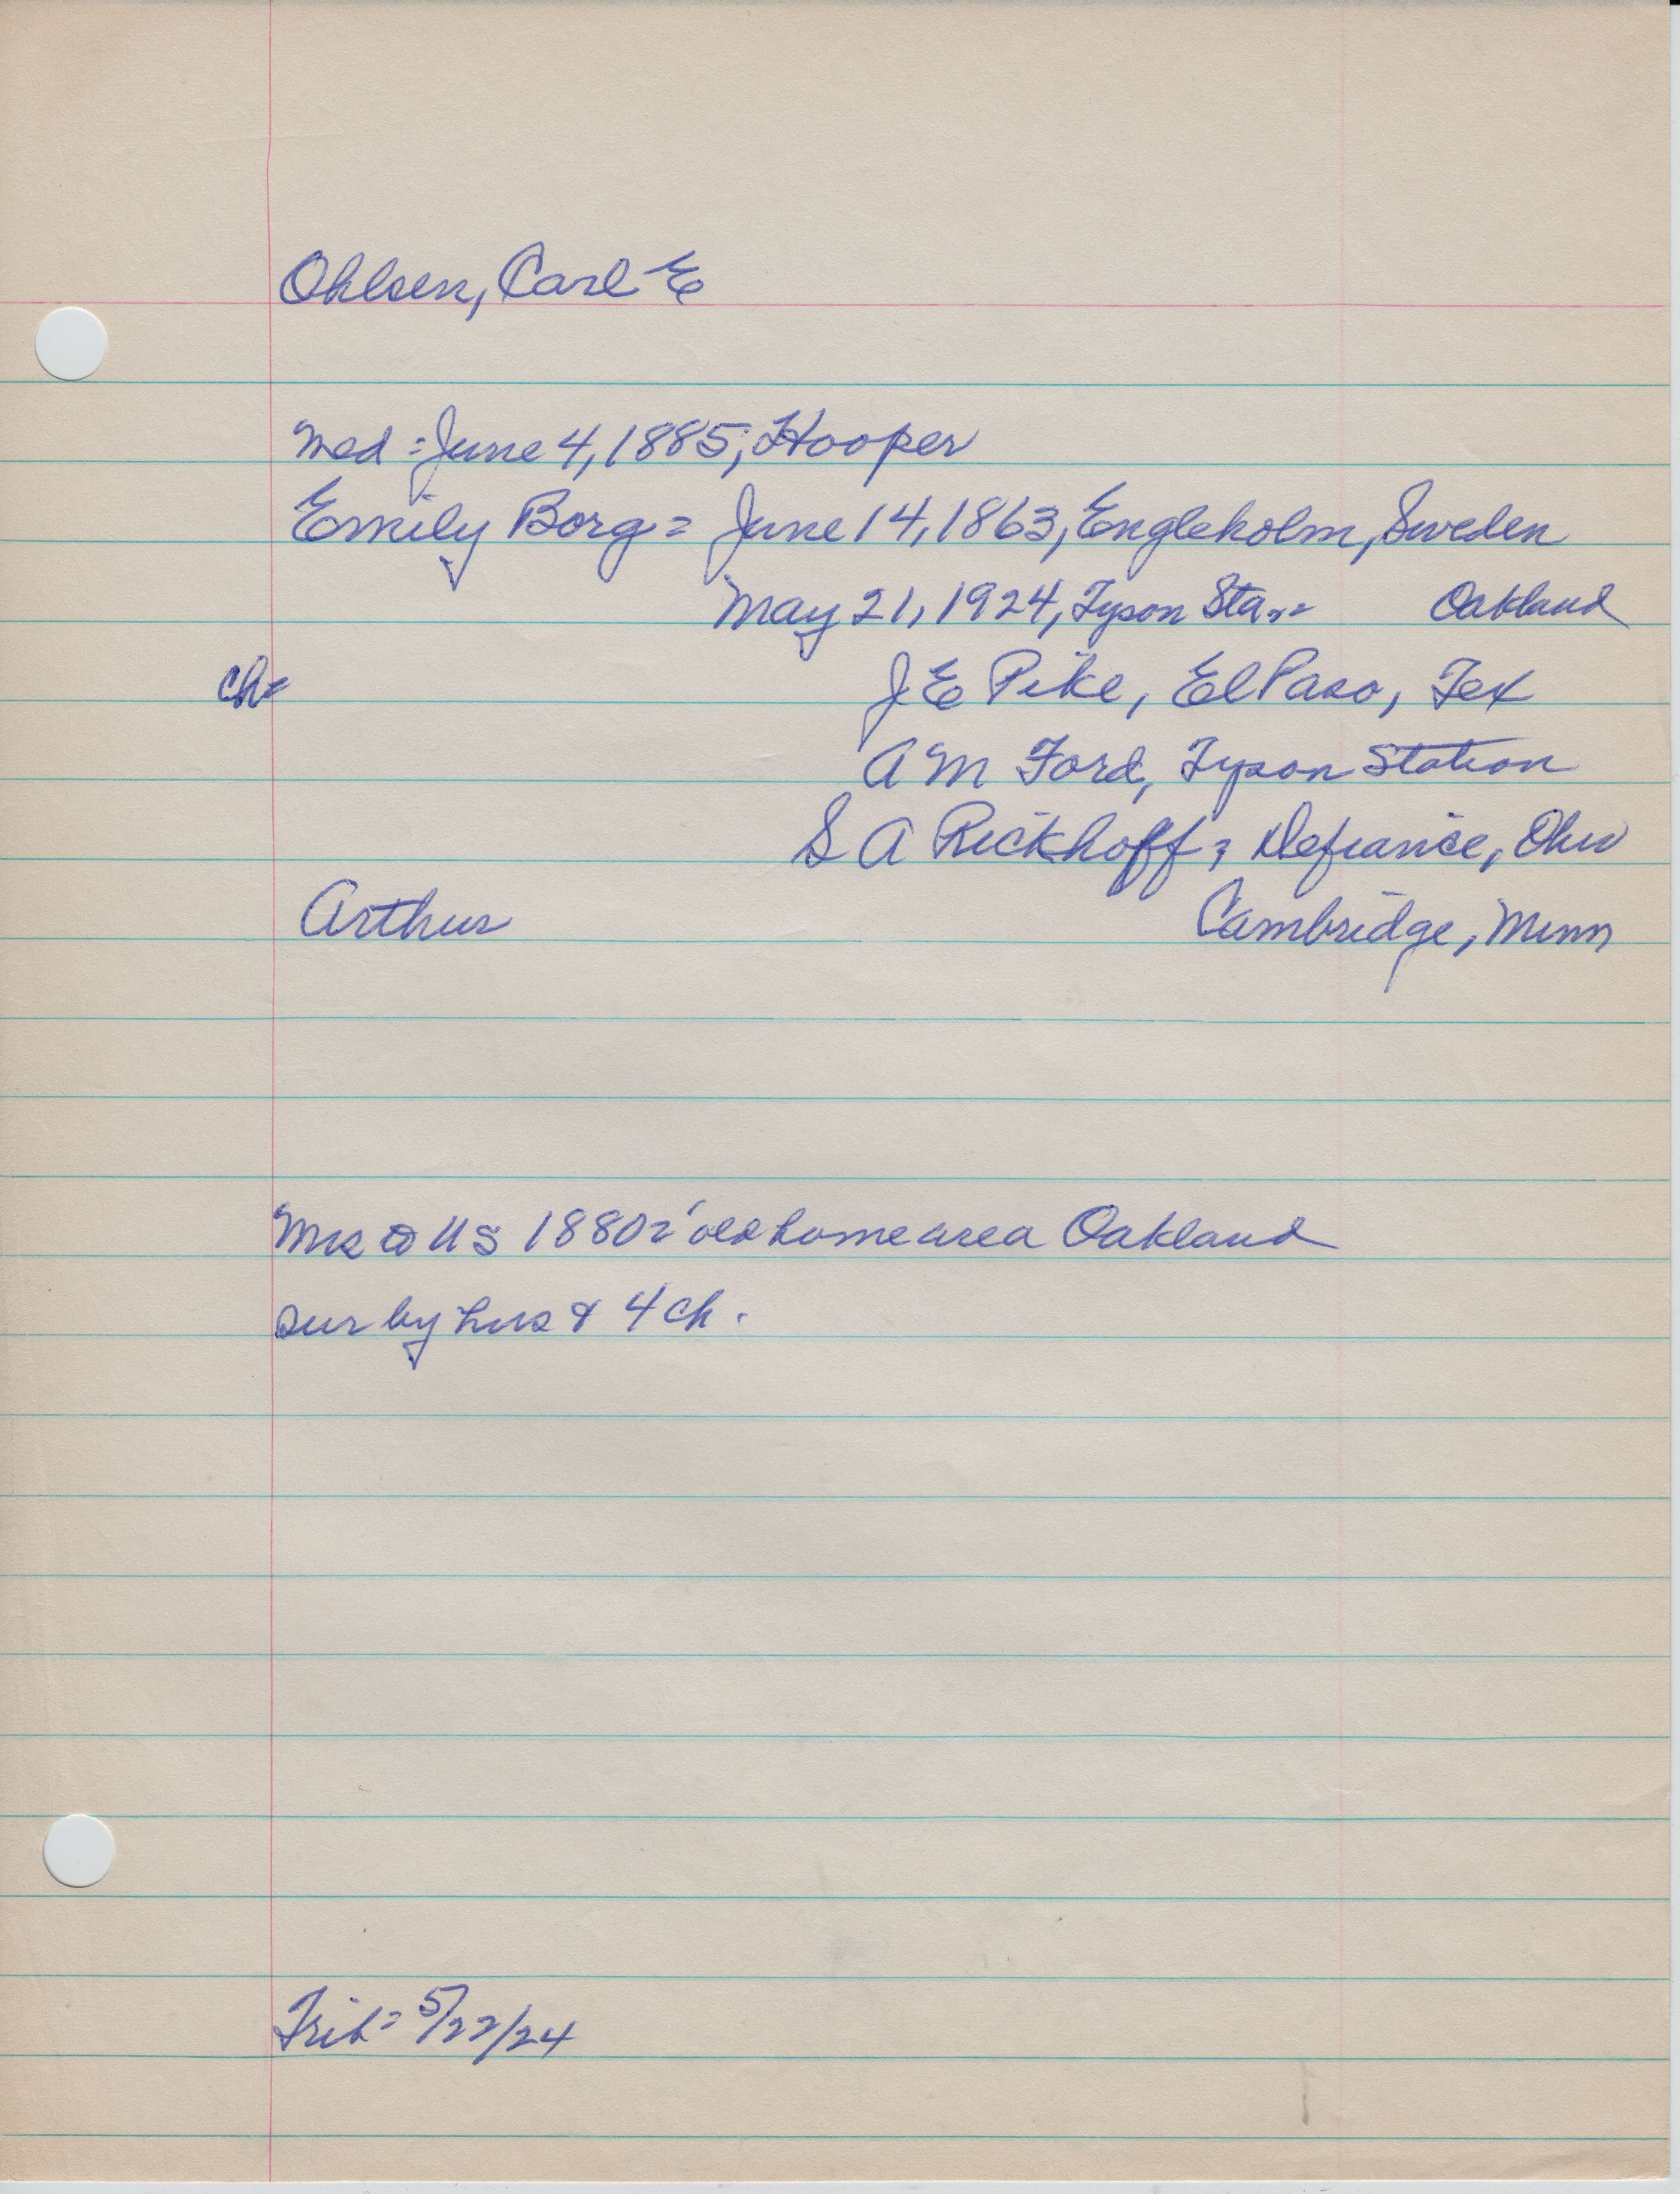 Ohlsen, Carl E
Med = June 4, 1885, Hooper
Emily Borg = June 14, 1863, Engleholm, Sweden
May 21, 1924, Tyson Sta. = Oakland
ch =
J E Pike, El Paso, Tex
A M Ford, Tyson Station
S A Rickhoff, Defiance, Ohio
Arthur Cambridge, Minn
Mrs to US 1880 = old home area Oakland
sur by hus & 4 ch.
Trib = 5/22/24